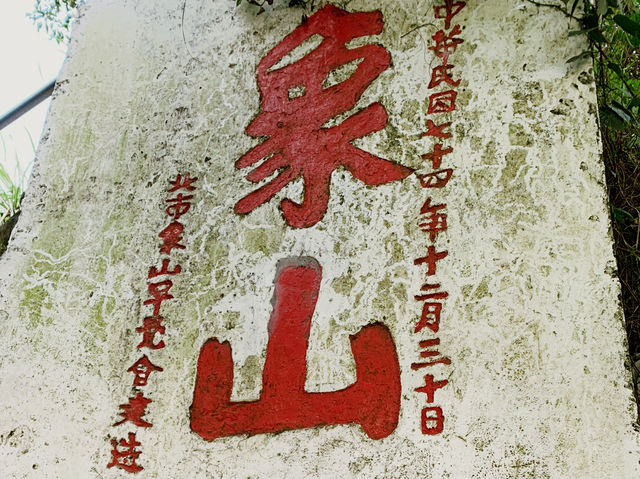 中華民国七十四年十二月三十日
象山
北市象山早覺会建造